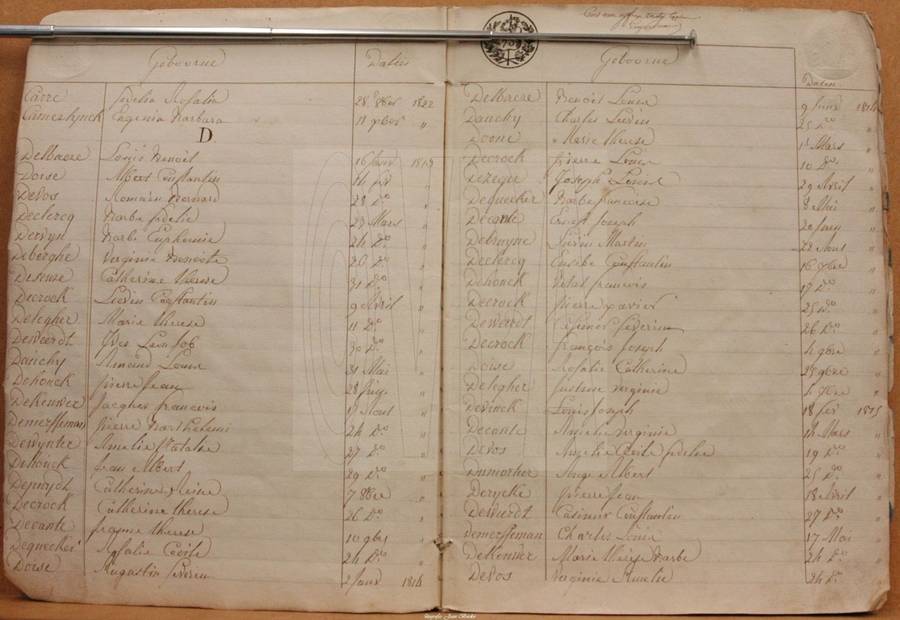 Geboorne Daten
Carre Sidelia Rosalia 28 8ber 1812
Cameslynck Eugenia Barbara 11 9ber "
D.
Delbaere Louis Benoit 16 Janv 1813
Dorse Albert Constantin 16 fev "
Devos Romain Bernard 28 Do "
Declercq Barbe fidelie 23 Mars "
Dewyn Barbe Euphemie 24 Do "
Deberghe Virginie Benoite 26 Do "
Catherine therese 31 Do "
Decrock Livin Constantin 9 Avril "
Delegher Marie therese 11 Do "
Dewerdt Yves Leon Job 30 Do "
Danchy Armand Louis 31 Mai "
Dehonck pierre jean 28 "
Dekeuwer Jacques francois 17 Aout "
Demersseman pierre Barthelemi 24 Do "
Dewynter Amelie Natalie 27 Do "
Dehonck jean Albert 29 Do "
Catherine Reine 7 8bre "
Decrock Catherine therese 26 Do "
Decante therese 10 9bre "
Dequecker Cecile 24 Do "
Dorse Augustin 2 Janv 1814
Geboorne Daten
Delbaere Benoit Louis 9 1814
Danchy Charles Livin 25 Do "
Doone Marie therese 1r Mars "
Decrock pierre Louis 10 Do "
Joseph 29 Avril "
Dequecker Barbe francoise 8 Mai "
Decante Joseph 20 Juny "
Debruyne Livin Martin 22 Aout "
Declercq Eusebe Constantin 16 7bre "
Dehonck francois 17 Do "
Decrock pierre xavier 25 Do "
Dewerdt Severin 26 Do "
Decrock françois Joseph 4 9bre "
Dorse Rosalie Catherine 25 9bre "
Delegher Justine Virginie "
Devinck Louis Joseph 18 fev 1815
Decante Amelie Virginie 14 Mars "
Devos Angelie fidelie 19 Do "
Ange Albert 25 Do "
Derycke pierre jean 13 Avril "
Dewerdt Casimir Constantin 27 Do "
Demersseman Charles Louis 17 Mai "
Dekeuwer Marie Barbe 24 Do "
Devos Virginie Amelie 24 Do "